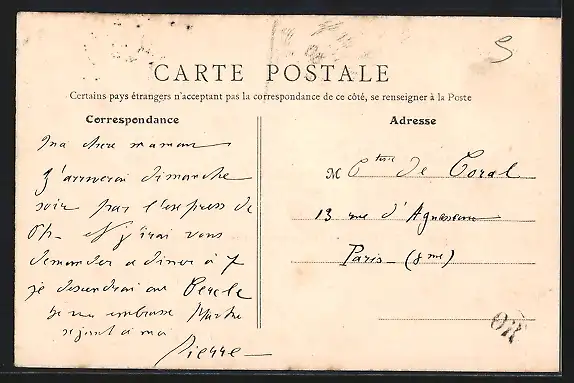 CARTE POSTALE
Certains pays étrangers n'acceptant pas la correspondance de ce côté, se renseigner à la Poste
Correspondance
Ma chère maman
J'arriverai dimanche
soir par l'express de
et j'irai vous
demander à diner à 7
je descendrai au Cercle
Je vous embrasse
se joint à moi
Pierre
Adresse
M Ctesse de Coral
13 rue d'Aguesseau
Paris - (8me)
OR